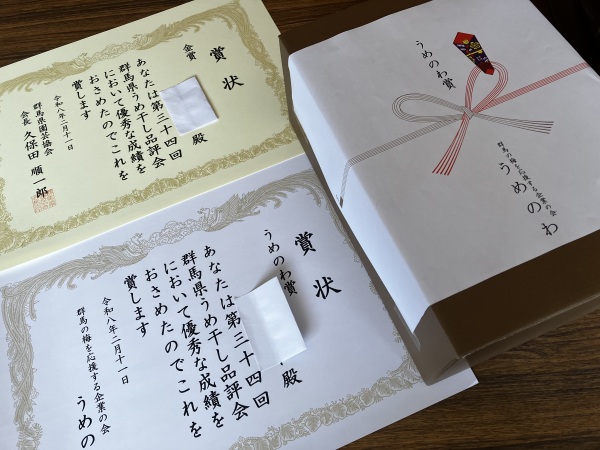 賞状
金賞
殿
あなたは第三十四回
群馬県うめ干し品評会
において優秀な成績を
おさめたのでこれを
賞します
令和八年二月十一日
群馬県園芸協会
会長 久保田 順一郎
賞状
うめのわ賞
殿
あなたは第三十四回
群馬県うめ干し品評会
において優秀な成績を
おさめたのでこれを
賞します
令和八年二月十一日
群馬の梅を応援する企業の会
うめの
うめのわ賞
群馬の梅を応援する企業の会
うめのわ